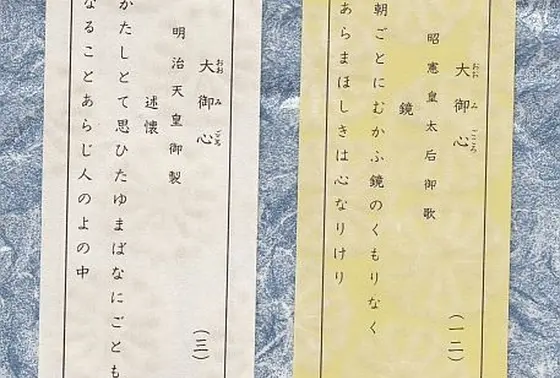 おおみごころ
大御心
昭憲皇太后御歌
鏡
朝ごとにむかふ鏡のくもりなく
あらまほしきは心なりけり
(一二)
おおみごころ
大御心
明治天皇御製
述懐
かたしとて思ひたゆまばなにごとも
なることあらじ人のよの中
(三)